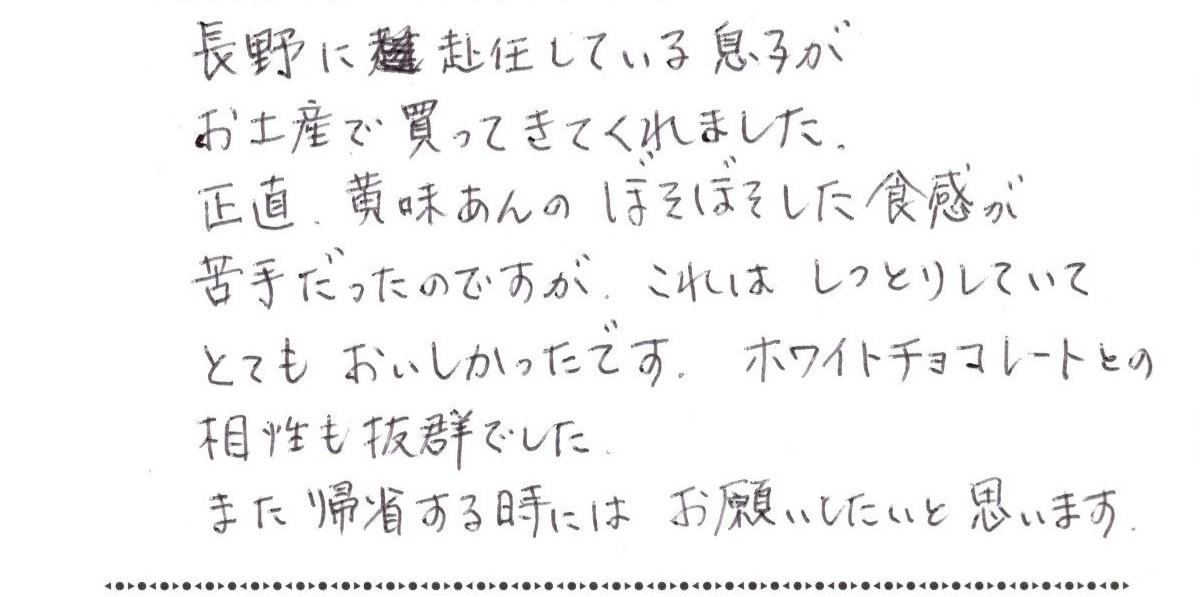 長野に赴任している息子が
お土産で買ってきてくれました.
正直、黄味あんの ぼそぼそした食感が
苦手だったのですが、これは しっとりしていて
とても おいしかったです. ホワイトチョコレートとの
相性も抜群でした.
また帰省する時には お願いしたいと思います.